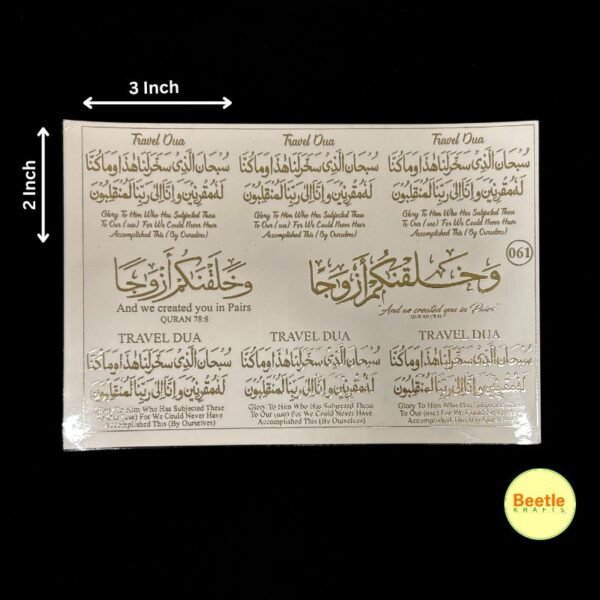 3 Inch
2 Inch
Travel Dua
سُبْحَانَ الَّذِي سَخَّرَ لَنَا هَٰذَا وَمَا كُنَّا
لَهُ مُقْرِنِينَ وَإِنَّا إِلَىٰ رَبِّنَا لَمُنْقَلِبُونَ
Glory To Him Who Has Subjected These
To Our ( use ) For We Could Never Have
Accomplished This ( By Ourselves )
Travel Dua
سُبْحَانَ الَّذِي سَخَّرَ لَنَا هَٰذَا وَمَا كُنَّا
لَهُ مُقْرِنِينَ وَإِنَّا إِلَىٰ رَبِّنَا لَمُنْقَلِبُونَ
Glory To Him Who Has Subjected These
To Our ( use ) For We Could Never Have
Accomplished This ( By Ourselves )
Travel Dua
سُبْحَانَ الَّذِي سَخَّرَ لَنَا هَٰذَا وَمَا كُنَّا
لَهُ مُقْرِنِينَ وَإِنَّا إِلَىٰ رَبِّنَا لَمُنْقَلِبُونَ
Glory To Him Who Has Subjected These
To Our ( use ) For We Could Never Have
Accomplished This ( By Ourselves )
061
وَخَلَقْنَاكُمْ أَزْوَاجًا
And we created you in Pairs
QURAN 78:8
وَخَلَقْنَكُمْ أَزْوَجًا
"And we created you in Pairs"
QURAN (78:8)
TRAVEL DUA
سُبْحَانَ الَّذِي سَخَّرَ لَنَا هَٰذَا وَمَا كُنَّا
لَهُ مُقْرِنِينَ وَإِنَّا إِلَىٰ رَبِّنَا لَمُنْقَلِبُونَ
Glory To Him Who Has Subjected These
To Our (use) For We Could Never Have
Accomplished This (By Ourselves)
TRAVEL DUA
سُبْحَانَ الَّذِي سَخَّرَ لَنَا هَٰذَا وَمَا كُنَّا
لَهُ مُقْرِنِينَ وَإِنَّا إِلَىٰ رَبِّنَا لَمُنْقَلِبُونَ
Glory To Him Who Has Subjected These
To Our (use) For We Could Never Have
Accomplished This (By Ourselves)
TRAVEL DUA
سُبْحَانَ الَّذِي سَخَّرَ لَنَا هَٰذَا وَمَا كُنَّا
لَهُ مُقْرِنِينَ وَإِنَّا إِلَىٰ رَبِّنَا لَمُنْقَلِبُونَ
Glory To Him Who Has
To Our (use) For We Could Never Have
Accomplished This (By Ourselves)
Beetle
KRAFTS